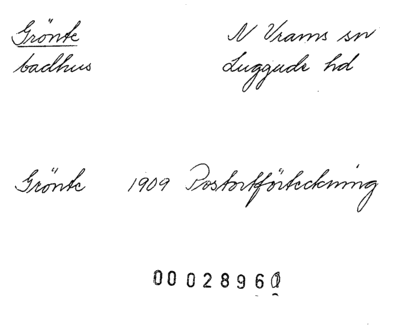 Grönte N Vrams sn
badhus Luggude hd
Grönte 1909 Postortförteckning